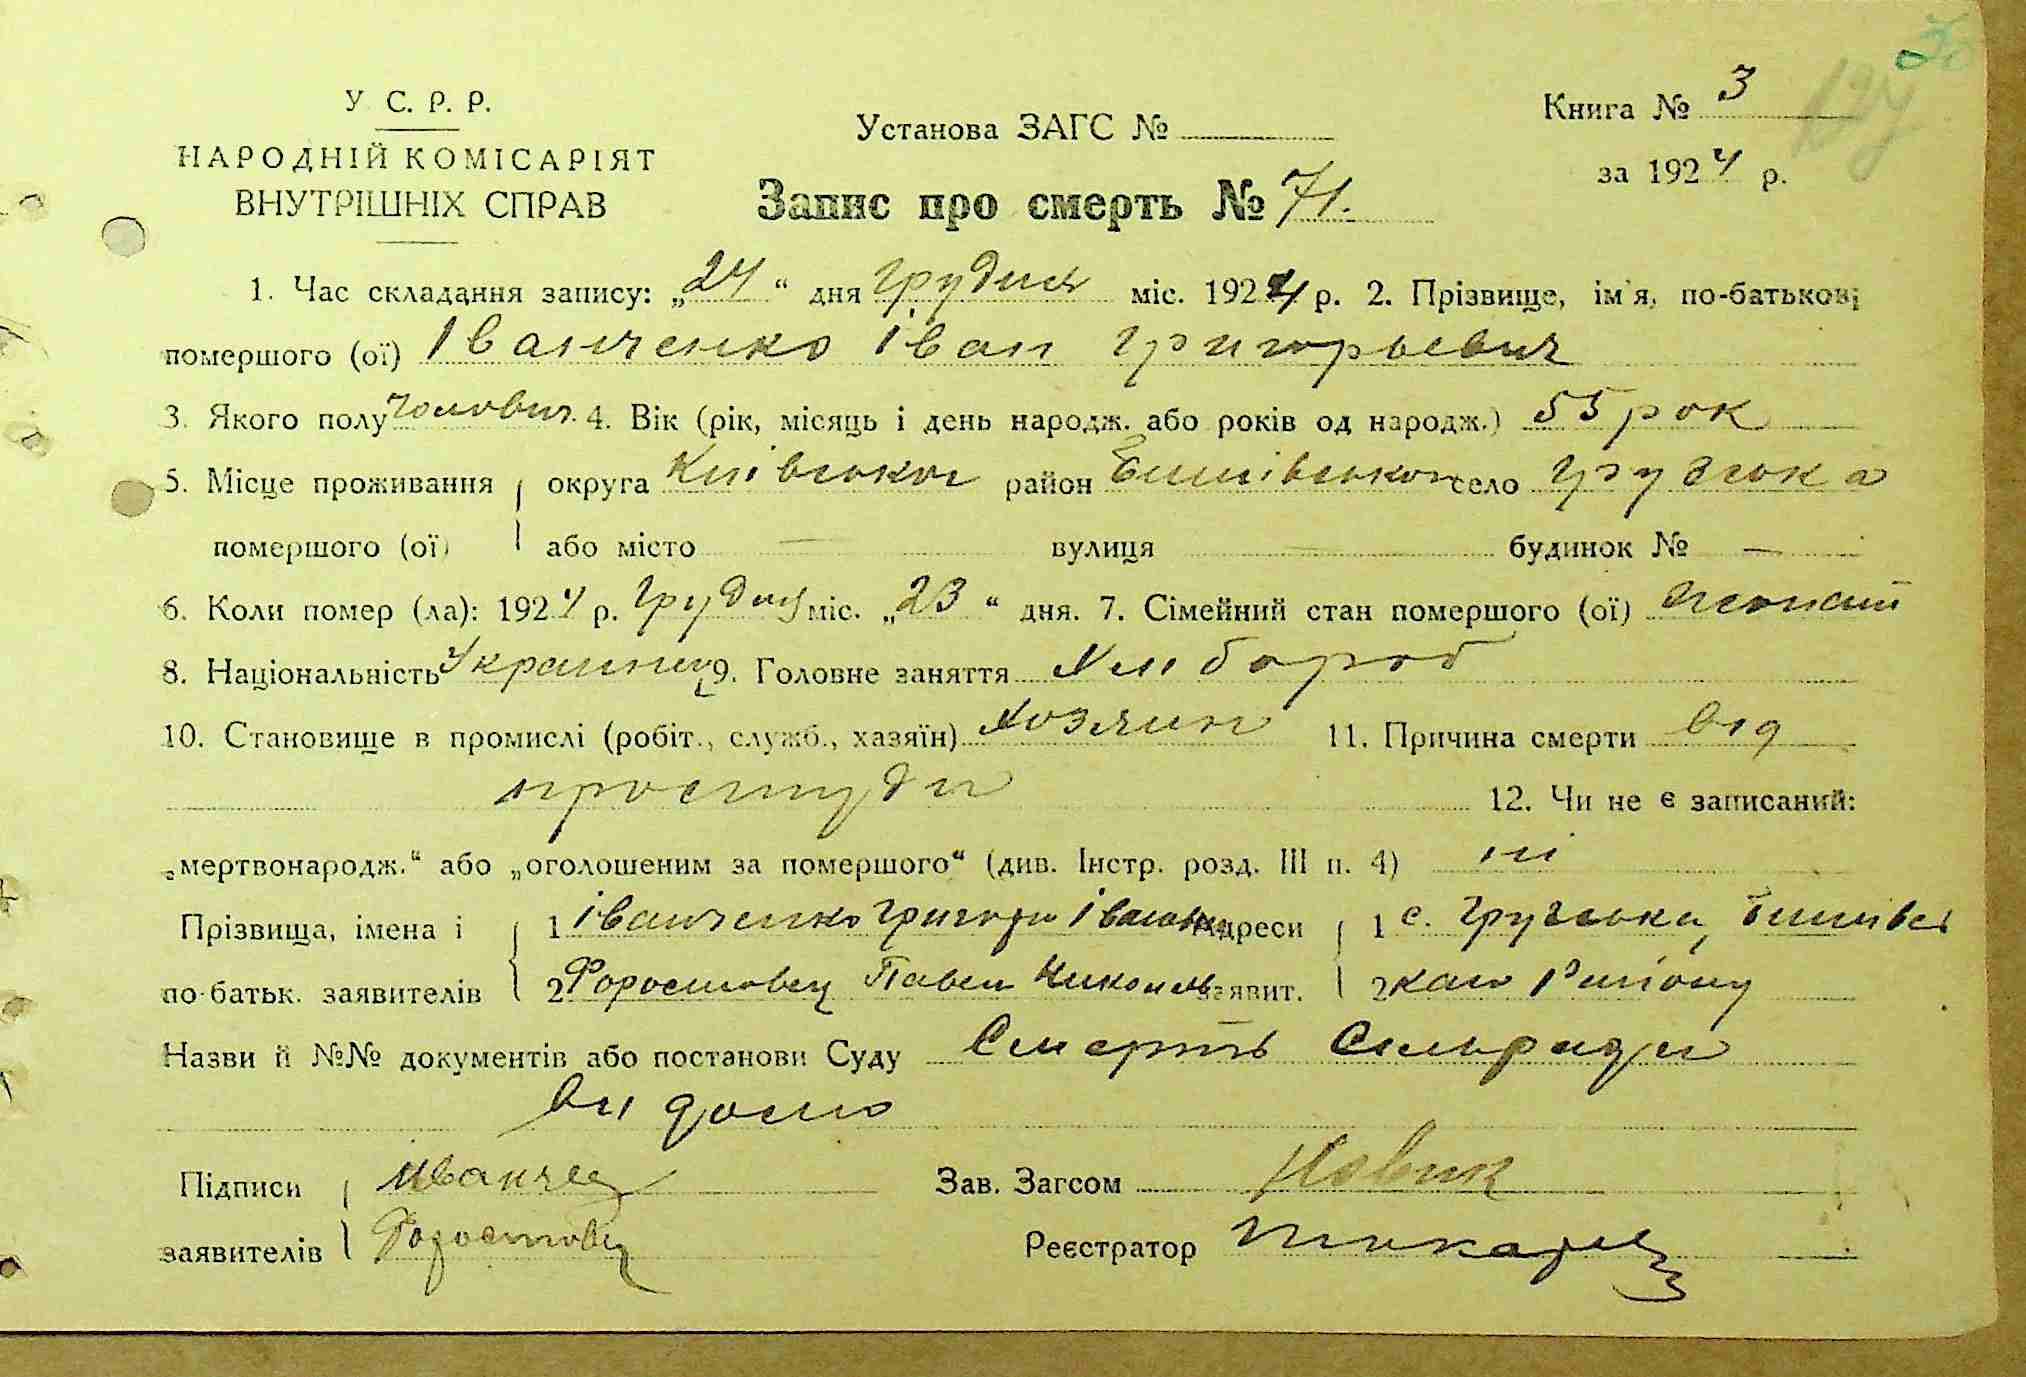 У С. Р. Р.
НАРОДНІЙ КОМІСАРІЯТ
ВНУТРІШНІХ СПРАВ
Установа ЗАГС №
Книга № 3
за 1924 р.
Запис про смерть № 71.
1. Час складання запису: „24“ дня грудня міс. 1924 р. 2. Прізвище, ім'я, по-батькові
помершого (ої) Іванченко Іван Григорьевич
3. Якого полу чоловіч. 4. Вік (рік, місяць і день народж. або років од народж.) 55 рок
5. Місце проживання округа Київської район село Грузська
помершого (ої) або місто — вулиця — будинок № —
6. Коли помер (ла): 1924 р. Грудня міс. „23“ дня. 7. Сімейний стан помершого (ої) жонатий
8. Національність Украинец 9. Головне заняття Хлібороб
10. Становище в промислі (робіт., служб., хазяїн) Хозяин 11. Причина смерти від
простуди 12. Чи не є записаний:
„мертвонародж.“ або „оголошеним за помершого“ (див. Інстр. розд. III п. 4) ні
Прізвища, імена і 1 Іванченко Григори Іванов Адреси 1 с. Грузська,
по-батьк. заявителів 2 Форостовец Павел Николаев заявит. 2 каго Району
Назви й №№ документів або постанови Суду Смерть Сильради
видомо
Підписи Иванчен
заявителів Форостовец
Зав. Загсом Новик
Реєстратор